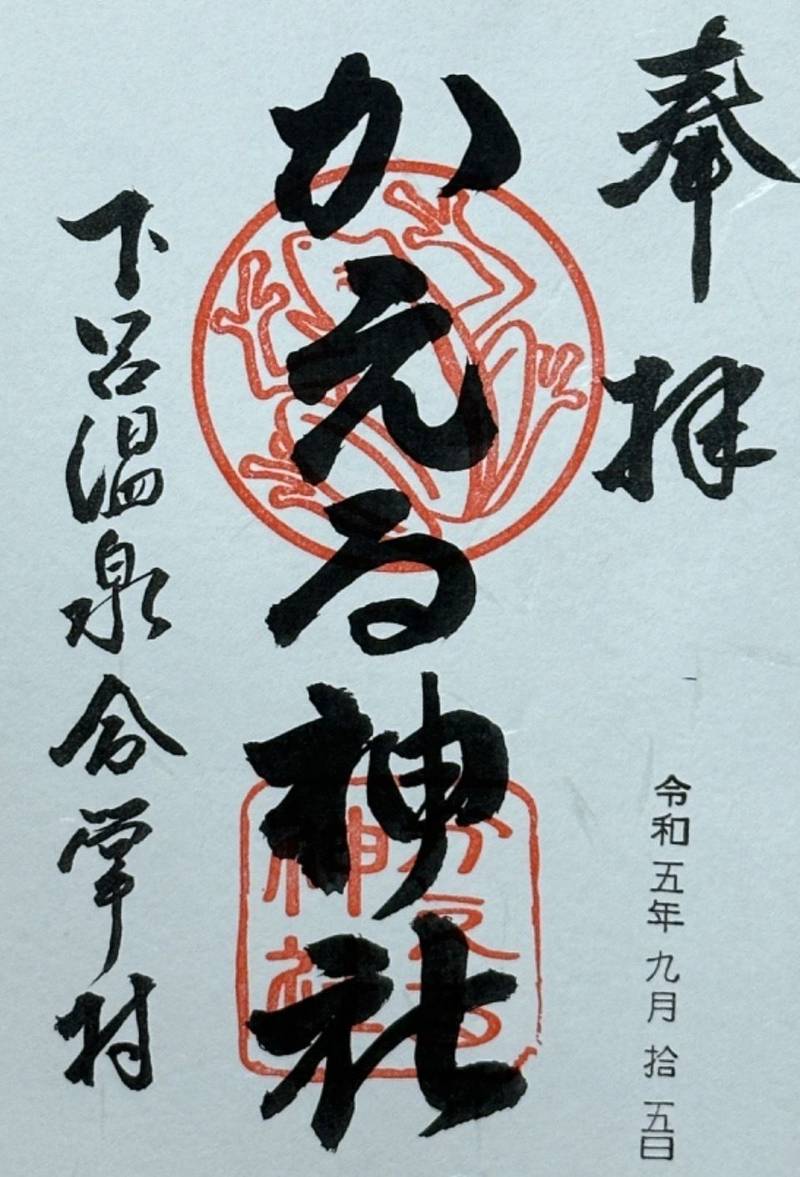 奉拝
令和五年九月拾五日
かえる神社
かえる
神社
下呂温泉合掌村